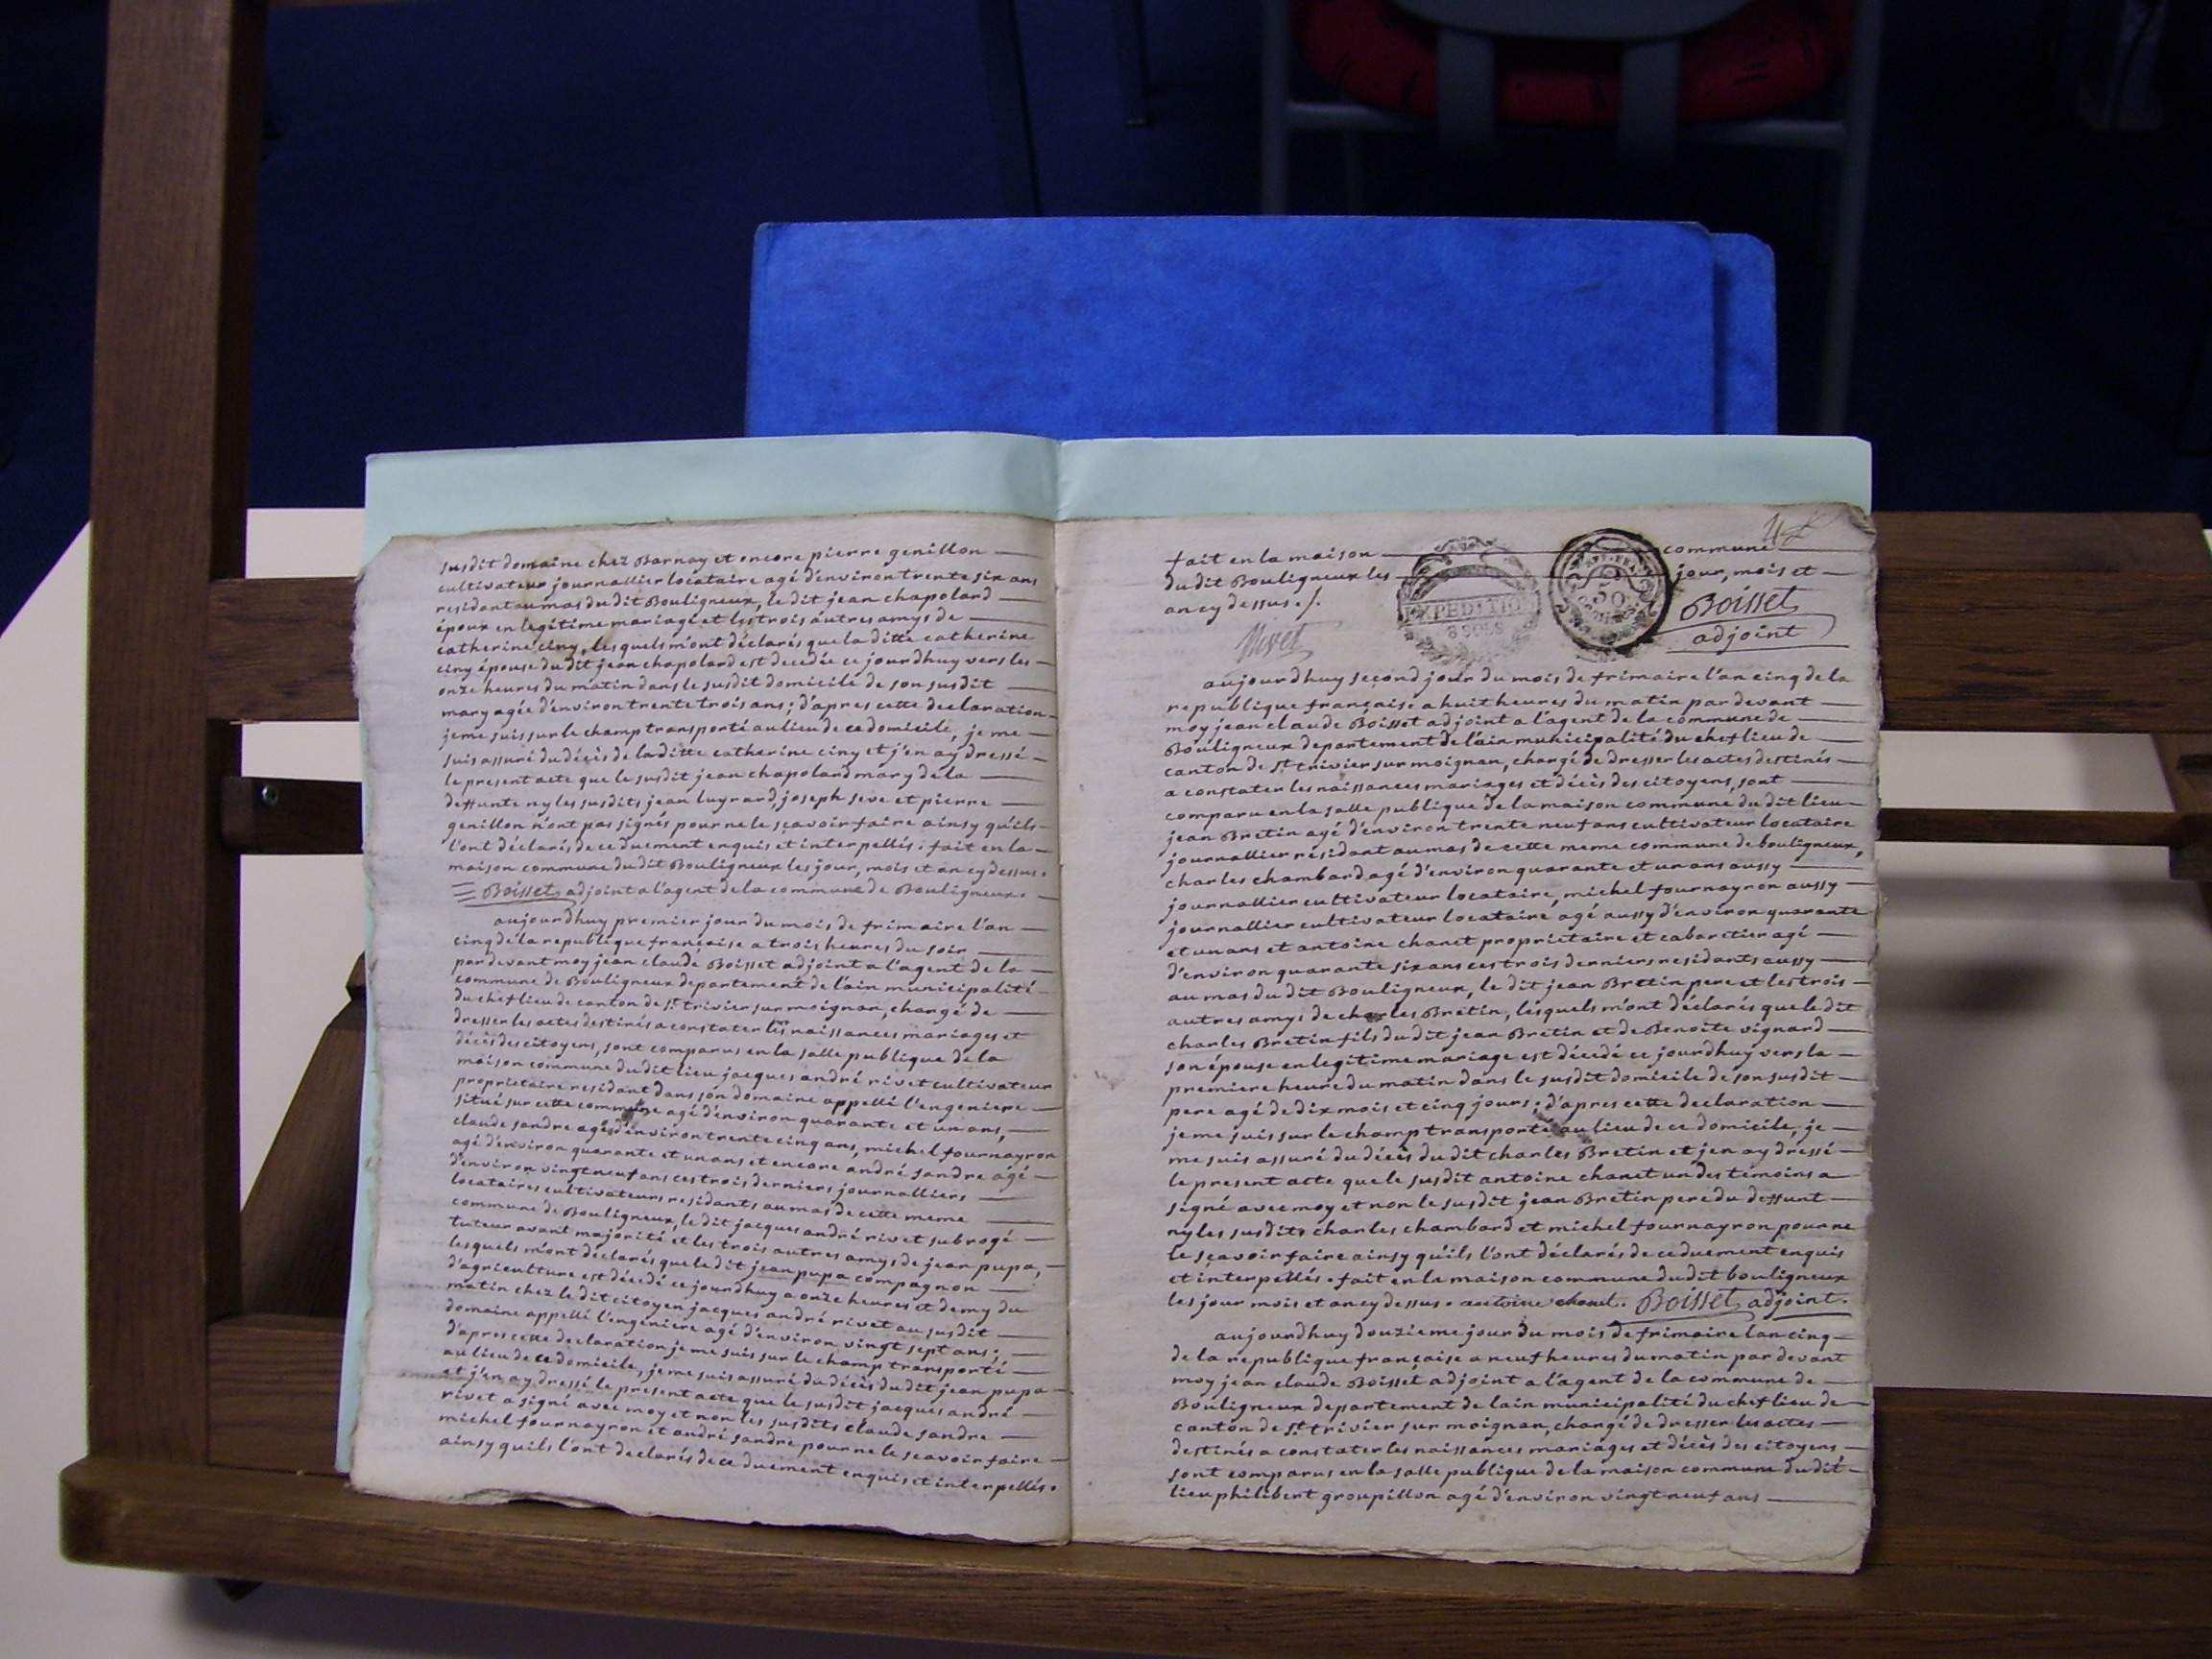 susdit domaine chez Barnay et encore pierre genillon
cultivateur journallier locataire agé d'environ trente six ans
residant au mas du dit Bouligneux, le dit jean chapolard
époux en legitime mariage et les trois autres amys de
catherine ciny, lesquels m'ont déclarés que la ditte catherine
ciny épouse du dit jean chapolard est decedée ce jourdhuy vers les
onze heures du matin dans le susdit domicile de son susdit
mary agée d'environ trente trois ans ; d'apres cette declaration
je me suis sur le champ transporté au lieu de ce domicile, je me
suis assuré du décès de la ditte catherine ciny et j'en ay dressé
le present acte que le susdit jean chapolard mary de la
deffunte ny les susdits jean luyrard, joseph seve et pierre
genillon n'ont pas signés pour ne le scavoir faire ainsy qu'ils
l'ont déclarés de ce duement enquis et interpellés. fait en la
maison commune du dit Bouligneux les jour, mois et an cy dessus.
Boisset adjoint a l'agent de la commune de Bouligneux.
aujourdhuy premier jour du mois de frimaire l'an
cinq de la republique française a trois heures du soir
par devant moy jean claude Boisset adjoint a l'agent de la
commune de Bouligneux departement de l'ain municipalité
du chef lieu de canton de st. trivier sur moignan, chargé de
dresser les actes destinés a constater les naissances mariages et
décès des citoyens, sont comparus en la salle publique de la
maison commune du dit lieu jacques andré rivet cultivateur
proprietaire residant dans son domaine appellé l'engeniere
situé sur cette commune agé d'environ quarante et un ans,
claude sandre agé d'environ trente cinq ans, michel fournayron
agé d'environ quarante et un ans et encore andré sandre agé
d'environ vingt neuf ans ces trois derniers journalliers
locataires cultivateurs residants au mas de cette meme
commune de Bouligneux, le dit jacques andré rivet subrogé
tuteur avant majorité et les trois autres amys de jean pupa,
lesquels m'ont déclarés que le dit jean pupa compagnon
d'agriculture est décedé ce jourdhuy a onze heures et demy du
matin chez le dit citoyen jacques andré rivet au susdit
domaine appellé l'engeniere agé d'environ vingt sept ans ;
d'apres cette declaration je me suis sur le champ transporté
au lieu de ce domicile, je me suis assuré du décès du dit jean pupa
et j'en ay dressé le present acte que le susdit jacques andré
rivet a signé avec moy et non les susdits claude sandre
michel fournayron et andré sandre pour ne le scavoir faire
ainsy qu'ils l'ont declarés de ce duement enquis et interpellés.
fait en la maison commune
du dit Bouligneux les jour, mois et
an cy dessus ./.
EXPEDITION
8 SOLS
50
Rivet
Boisset
adjoint
aujourdhuy second jour du mois de frimaire l'an cinq de la
republique française a huit heures du matin par devant
moy jean claude Boisset adjoint a l'agent de la commune de
Bouligneux departement de l'ain municipalité du chef lieu de
canton de st. trivier sur moignan, chargé de dresser les actes destinés
a constater les naissances mariages et décès des citoyens, sont
comparu en la salle publique de la maison commune du dit lieu
jean Bretin agé d'environ trente neuf ans cultivateur locataire
journallier résidant au mas de cette meme commune de bouligneux,
charles chambard agé d'environ quarante et un ans aussy
journallier cultivateur locataire, michel fournayron aussy
journallier cultivateur locataire agé aussy d'environ quarante
et un ans et antoine chanet proprietaire et cabaretier agé
d'environ quarante six ans ces trois derniers residants aussy
au mas du dit Bouligneux, le dit jean Bretin pere et les trois
autres amys de charles Bretin, lesquels m'ont déclarés que le dit
charles Bretin fils du dit jean Bretin et de Benoite vignard
son épouse en legitime mariage est décedé ce jourdhuy vers la
premiere heure du matin dans le susdit domicile de son susdit
pere agé de dix mois et cinq jours ; d'apres cette declaration
je me suis sur le champ transporté au lieu de ce domicile, je
me suis assuré du décès du dit charles Bretin et j'en ay dréssé
le present acte que le susdit antoine chanet un des témoins a
signé avec moy et non le susdit jean Bretin pere du deffunt
ny les susdits charles chambard et michel fournayron pour ne
le sçavoir faire ainsy qu'ils l'ont déclarés de ce duement enquis
et interpellés. fait en la maison commune du dit bouligneux
les jour mois et an cy dessus. antoine chanet. Boisset adjoint.
aujourdhuy douzieme jour du mois de frimaire l'an cinq
de la republique française a neuf heures du matin par devant
moy jean claude Boisset adjoint a l'agent de la commune de
Bouligneux departement de l'ain municipalité du chef lieu de
canton de st. trivier sur moignan, chargé de dresser les actes
destinés a constater les naissances mariages et décès des citoyens
sont comparus en la salle publique de la maison commune du dit
lieu philibert groupillon agé d'environ vingt neuf ans